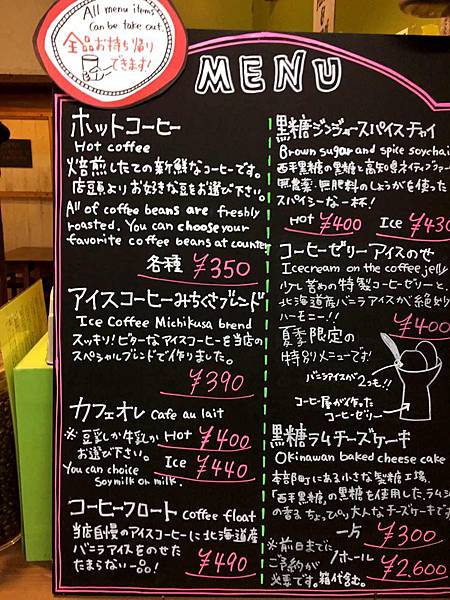 All menu items
Can be take out.
全品お持ち帰り
できます!
MENU
ホットコーヒー
Hot coffee
焙煎したての新鮮なコーヒーです。
店頭よりお好きな豆をお選び下さい。
All of coffee beans are freshly
roasted. You can choose your
favorite coffee beans at counter
各種 ¥350
アイスコーヒーみちくさブレンド
Ice Coffee Michikusa brend
スッキリ!ビターなアイスコーヒーを当店の
スペシャルブレンドで作りました。
¥390
カフェオレ Cafe au lait
※豆乳か牛乳か Hot ¥400
お選び下さい。
You can choice Ice ¥440
Soymilk or milk.
コーヒーフロート coffee float
当店自慢のアイスコーヒーに北海道産
バニラアイスをのせた
たまらない一品!
¥490
黒糖ジンジャースパイスチャイ
Brown sugar and spice soychai
西平黒糖の黒糖と高知県ネイティブファー
無農薬・無肥料のしょうがを使った
スパイシーな一杯!
Hot ¥400 Ice ¥430
コーヒーゼリーアイスのせ
Icecream on the coffee jelly
少し苦めの特製コーヒーゼリーと、
北海道産バニラアイスが絶妙
ハーモニー!!
¥400
夏季限定の
特別メニューです!
バニラアイスが2つも!!
コーヒー屋が作った
コーヒーゼリー
黒糖ラムチーズケーキ
Okinawan baked cheese cake
本部町にある小さな製糖工場、
「西平黒糖」の黒糖を使用した、ラム
の香る ちょっぴり大人なチーズケーキです
一片 ¥300
※前日までに
ご予約が 1ホール ¥2,600
必要です。箱代含む。